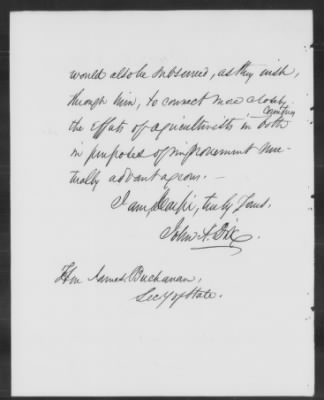 would also be subserved, as they wish,
through him, to connect more closely
the efforts of agriculturists in both
countries
in purposes of improvement mu-
tually advantageous. —
I am, dear sir, truly yours,
John A. Dix.
Hon James Buchanan,
Secy of State.